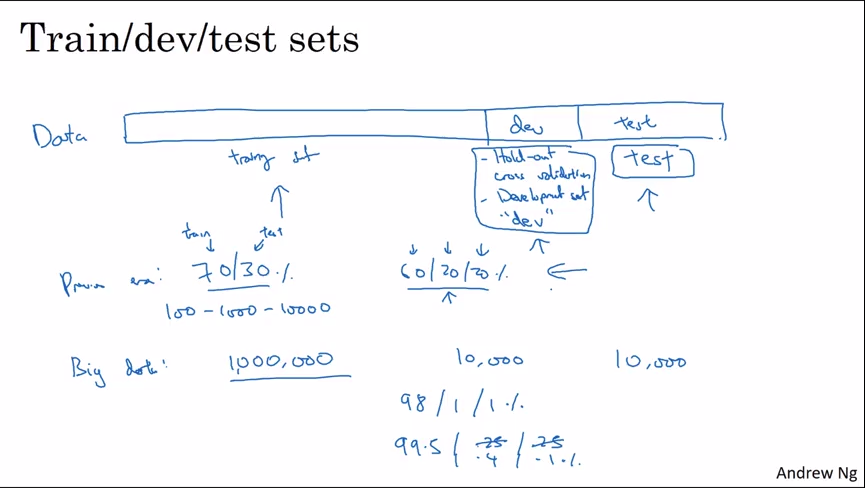 Train/dev/test sets
Data
dev
test
training set
- Hold-out
cross validation
- Development set
"dev"
test
train
test
Previous era:
70/30 %
60/20/20 %
100 - 1000 - 10000
Big data:
1,000,000
10,000
10,000
98 / 1 / 1 %
99.5 / 25 / 25
.4 .1 %
Andrew Ng